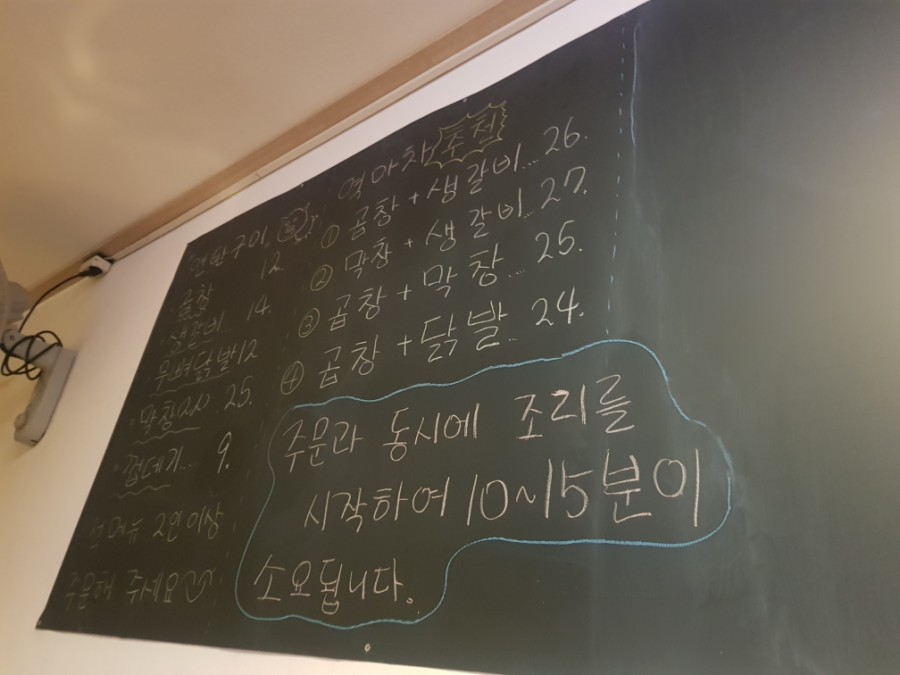 연탄구이
곱창 12.
생갈비 14.
무뼈닭발 12
막창(2人) 25.
껍데기... 9.
전메뉴 2인 이상
주문해 주세요
역마차 추천
① 곱창 + 생갈비... 26.
② 막창 + 생갈비... 27.
③ 곱창 + 막창... 25.
④ 곱창 + 닭발.. 24.
주문과 동시에 조리를
시작하여 10~15분이
소요됩니다.